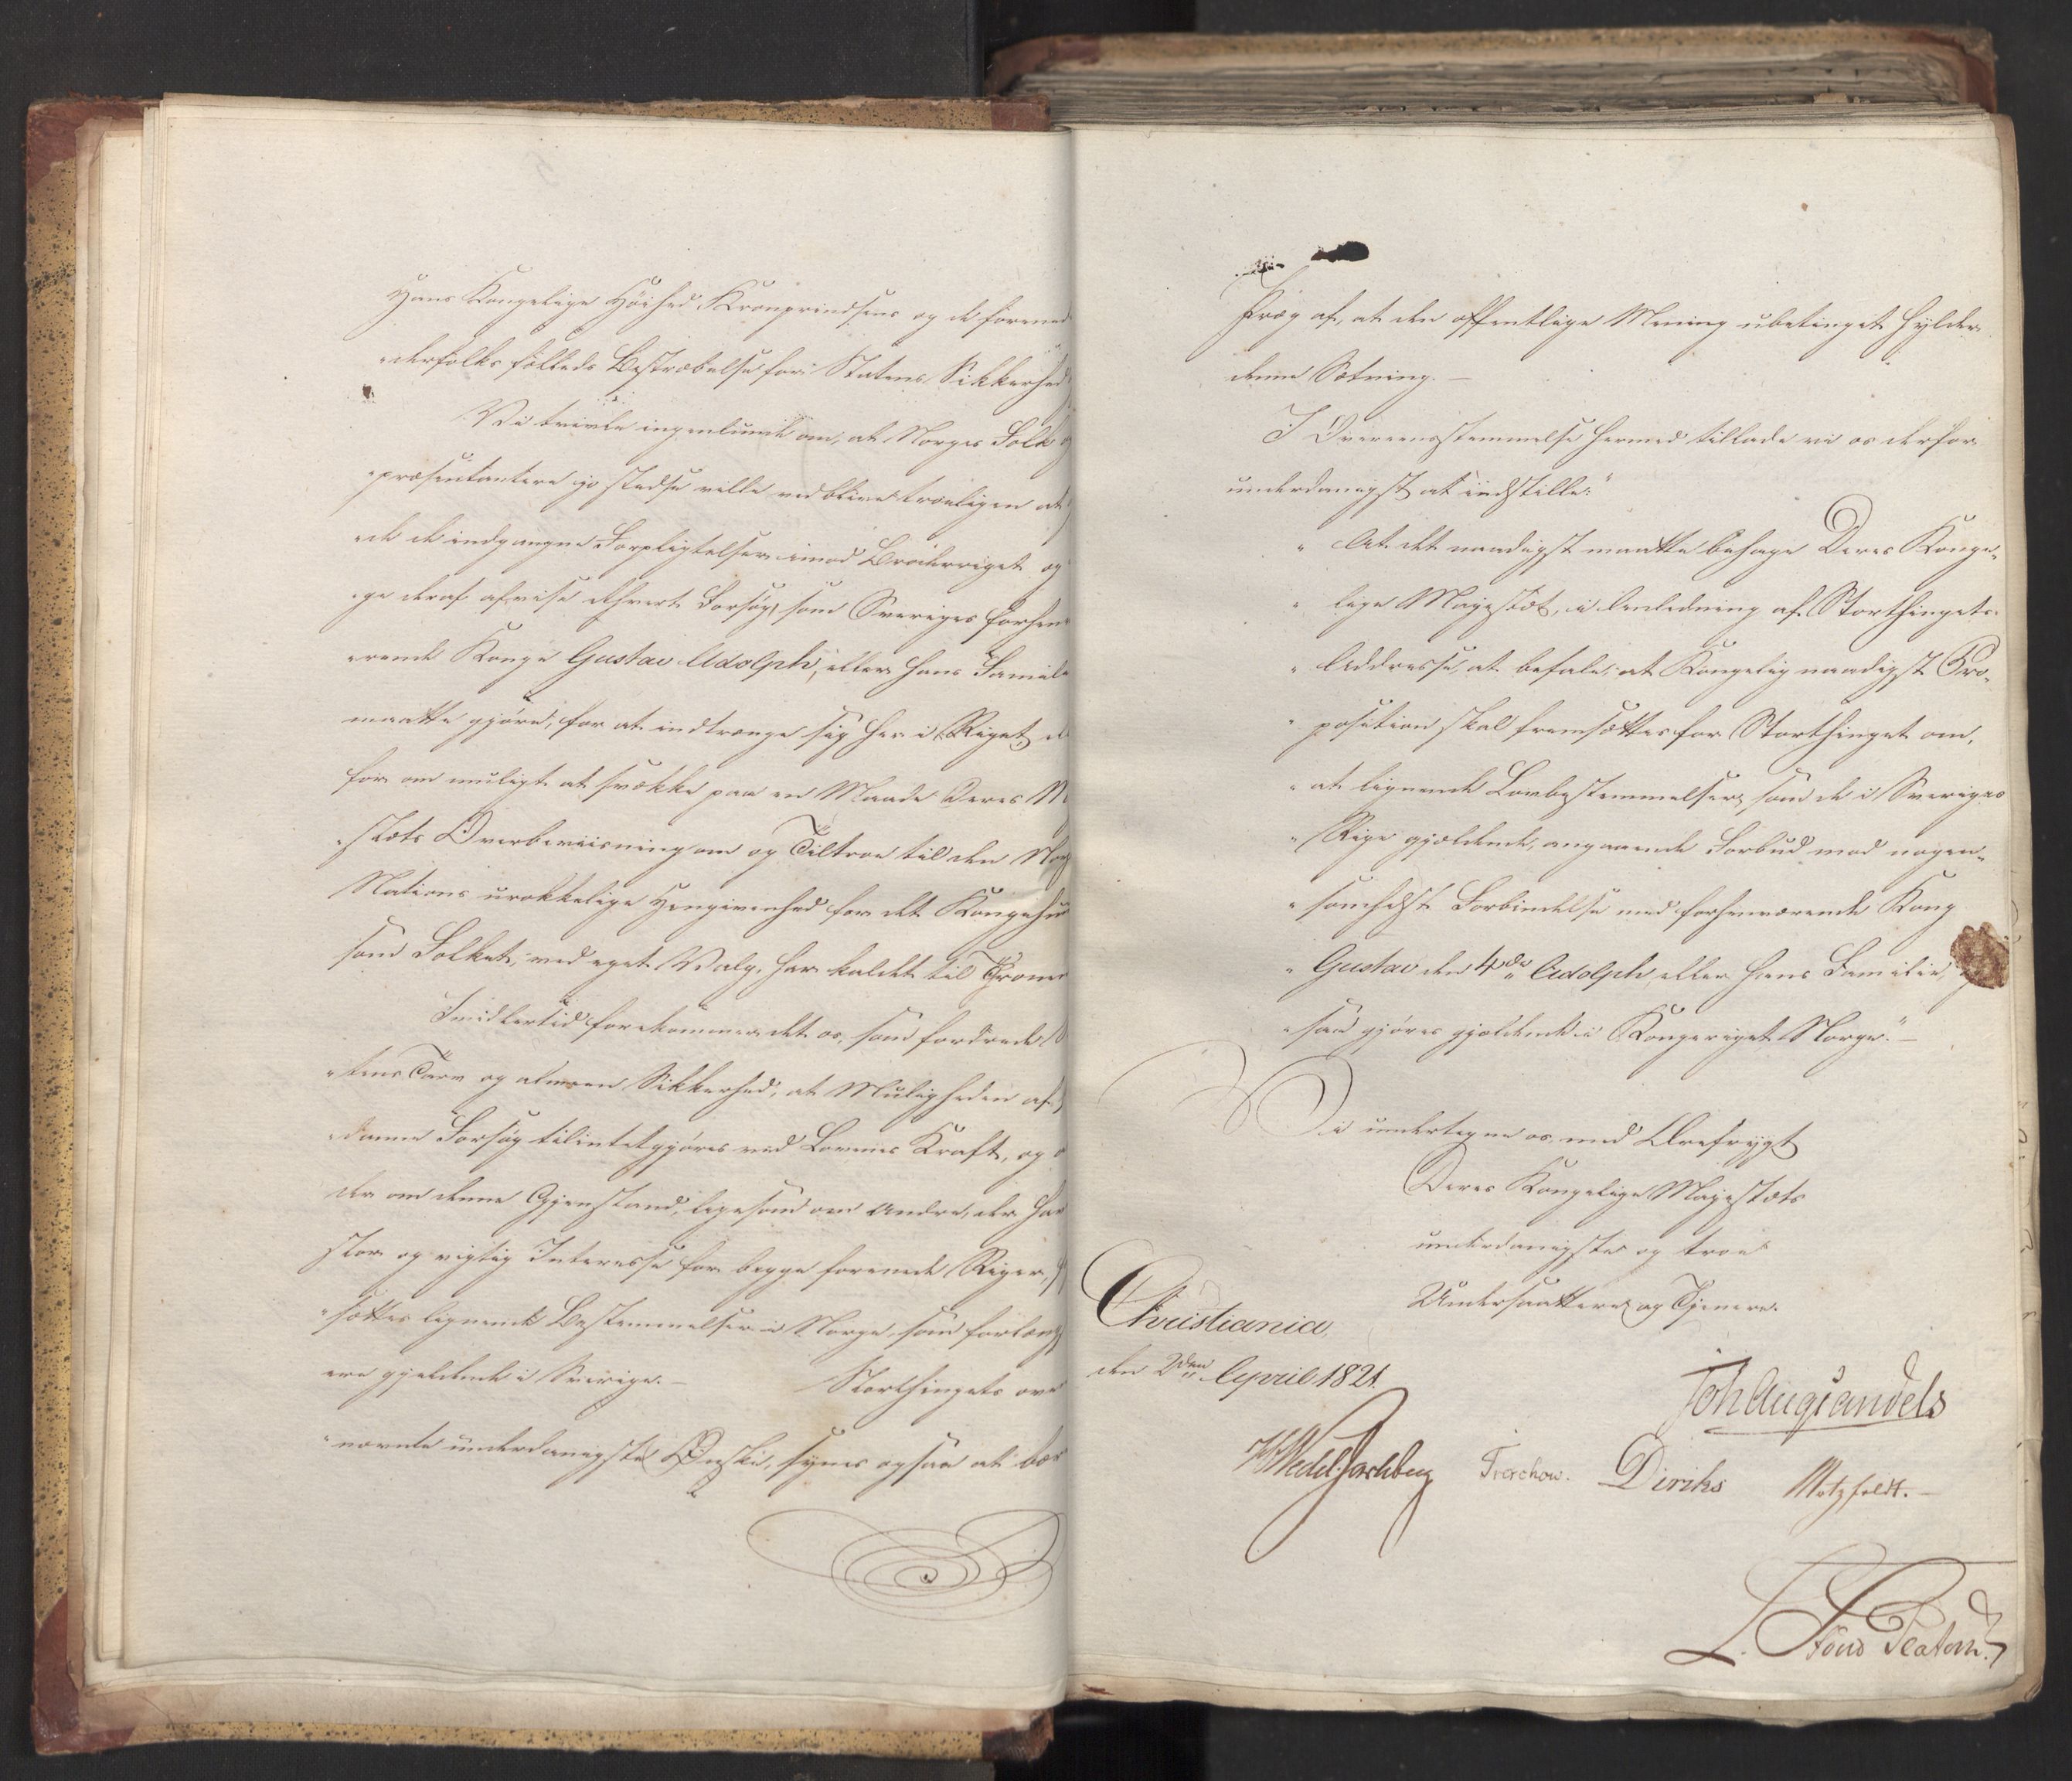 Hans Kongelige Höihed Kronprindsens og de forened
"derfolks fælleds Bestræbelse for Statens Sikkerhed
Vi tvivle ingenlunde om, at Norges Folk
"præsentantere jo stedse ville vedblive troeligen at
"de de indgangne Forpligtelser imod Broderriget og
"ge deraf afvise ethvert Forsøg, som Sveriges forhen
"rende Konge Gustav Adolph, eller hans Famile
maatte gjöre, for at indtrænge sig her i Riget
for om muligt at svække paa en Maade Deres M
"stæts Overbeviisning om og Tiltroe til den Nor
Nations urokkelige Hengivenhed for det Kongehuus
som Folket, ved eget Valg, har kaldet til Thronen
Imidlertid forekommer det os, som fordrede
"tens Tarv og almeen Sikkerhed, at Muligheden af
"danne Forsøg tilintetgjøres ved Lovens Kraft, og
der om denne Gjenstand, ligesom om andre, der har
stor og vigtig Interesse for begge forenede Riger,
"sættes lignende Bestemmelser i Norge, som forlængst
ere gjeldende i Sverige. — Storthingets ove
"nævnte underdanigste Ønske, synes ogsaa at bære
Præg af, at den offentlige Mening ubetinget hylder
denne Sætning. —
I Overeensstemmelse hermed tillade vi os derfor
underdanigst at indstille:
" At det naadigst maatte behage Deres Konge-
" lige Majestæt, i Anledning af Storthingets
" Addresse, at befale, at Kongelig naadigst Pro-
" position skal fremsættes for Storthinget om,
" at lignende Lovbestemmelser, som de i Sveriges
" Rige gjældende, angaaende Forbud mod nogen-
" somhelst Forbindelse med forhenværende Kong
" Gustav den 4de Adolph, eller hans Familie,
" saa gjöres gjældende i Kongeriget Norge." —
Vi undertegne os med Ærefrygt
Deres Kongelige Majestæts
underdanigste og troe
Undersaattere og Tjenere.
Christiania,
den 2den April 1821.
Joh Aug Sandels
HWedel Jarlsberg Treschow. Diriks Motzfeldt. —
L. Stoud Platou